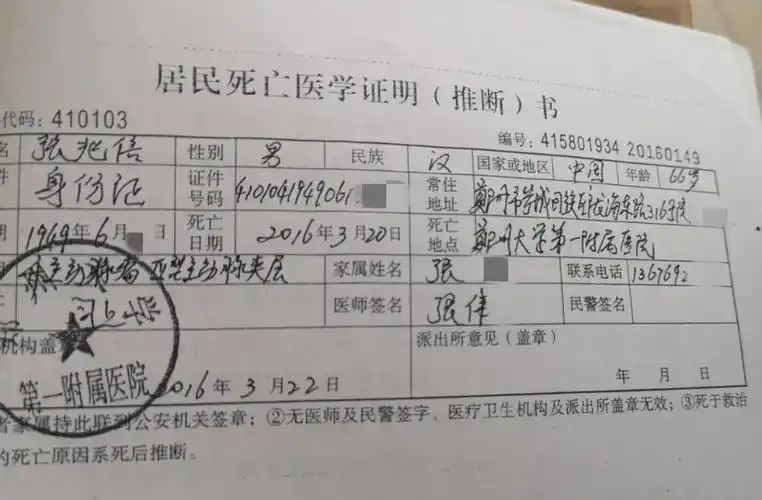 居民死亡医学证明（推断）书
代码：410103
编号：415801934 20160149
名 张兆信 性别 男 民族 汉 国家或地区 中国 年龄 66岁
件 身份证 证件号码 4101041949061 常住地址 郑州市管城回族区陇海东路316号院
期 1949年6月 日 死亡日期 2016年3月20日 死亡地点 郑州大学第一附属医院
主动脉瘤 A型主动脉夹层 家属姓名 张 联系电话 1367692
医师签名 张伟 民警签名
机构盖 派出所意见（盖章）
第一附属医院 2016年3月22日 年 月 日
者家属持此联到公安机关签章；②无医师及民警签字、医疗卫生机构及派出所盖章无效；③死于救治
的死亡原因系死后推断。